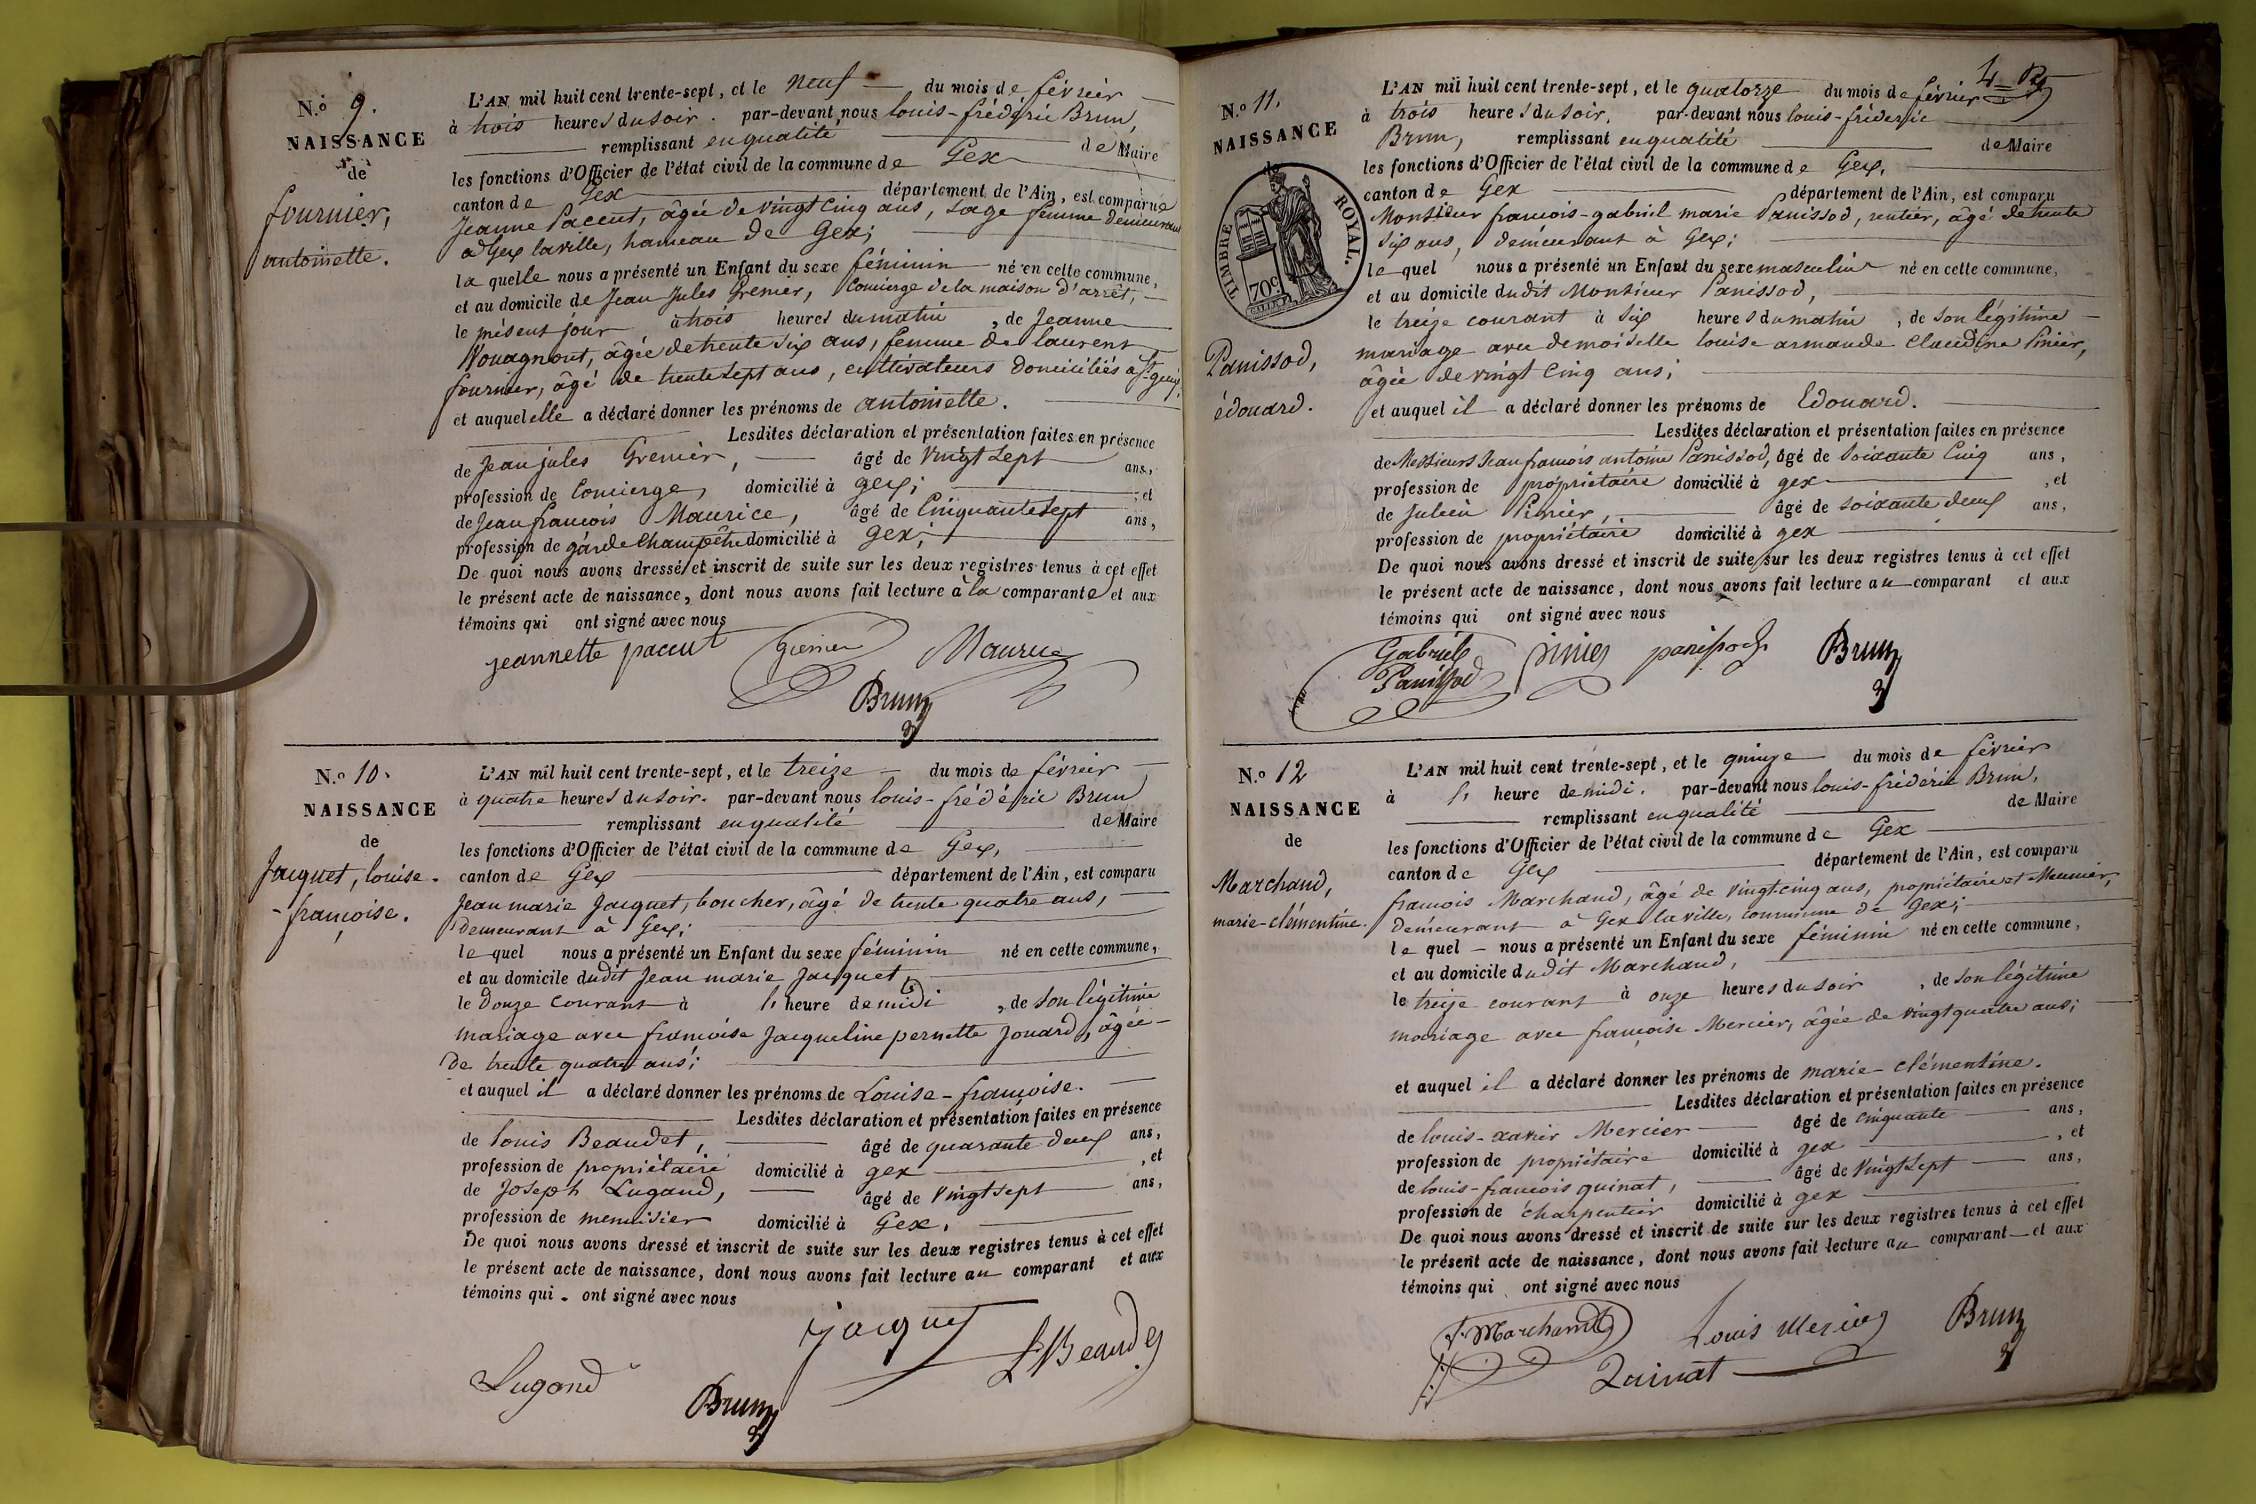 N.o 9.
NAISSANCE
de
fournier,
antoinette.
L'AN mil huit cent trente-sept, et le neuf du mois de février
à trois heures du soir. par-devant nous louis-fréderic Brun,
remplissant en qualité de Maire
les fonctions d'Officier de l'état civil de la commune de Gex
canton de Gex département de l'Ain, est comparue
Jeanne Paccut, âgée de vingt cinq ans, sage femme demeurant
à Gex la ville, hameau de Gex;
la quelle nous a présenté un Enfant du sexe féminin né en cette commune,
et au domicile de Jean Jules Grenier, Concierge de la maison d'arrêt,
le présent jour à trois heures du matin, de Jeanne
âgée de trente six ans, femme de laurent
fournier, âgé de trente sept ans, cultivateurs domiciliés à
et auquel elle a déclaré donner les prénoms de antoinette.
Lesdites déclaration et présentation faites en présence
de Jean jules Grenier, âgé de vingt sept ans,
profession de Concierge, domicilié à gex; et
de Jean françois Maurice, âgé de Cinquante sept ans,
profession de garde Champêtre domicilié à gex;
De quoi nous avons dressé et inscrit de suite sur les deux registres tenus à cet effet
le présent acte de naissance, dont nous avons fait lecture à la comparante et aux
témoins qui ont signé avec nous
jeannette paccut Grenier Maurice
Brun
N.o 10.
NAISSANCE
de
Jacquet, louise-
françoise.
L'AN mil huit cent trente-sept, et le treize du mois de février
à quatre heures du soir. par-devant nous louis-frédéric Brun
remplissant en qualité de Maire
les fonctions d'Officier de l'état civil de la commune de Gex,
canton de Gex département de l'Ain, est comparu
Jean marie Jacquet, boucher, âgé de trente quatre ans,
demeurant à Gex;
le quel nous a présenté un Enfant du sexe féminin né en cette commune,
et au domicile dudit Jean marie Jacquet,
le douze courant à 1 heure de midi, de son légitime
mariage avec françoise Jacqueline pernette Jouard, âgée
de trente quatre ans;
et auquel il a déclaré donner les prénoms de Louise-françoise.
Lesdites déclaration et présentation faites en présence
de louis Beaudet, âgé de quarante deux ans,
profession de propriétaire domicilié à gex, et
de Joseph Lugand, âgé de vingt sept ans,
profession de menuisier domicilié à Gex.
De quoi nous avons dressé et inscrit de suite sur les deux registres tenus à cet effet
le présent acte de naissance, dont nous avons fait lecture au comparant et aux
témoins qui ont signé avec nous
jacquet
L Beaudet
Lugand
Brun
4
N.o 11.
NAISSANCE
de
TIMBRE ROYAL.
70c
Panissod,
édouard.
L'AN mil huit cent trente-sept, et le quatorze du mois de février
à trois heures du soir, par-devant nous louis-fréderic
Brun, remplissant en qualité de Maire
les fonctions d'Officier de l'état civil de la commune de Gex,
canton de Gex département de l'Ain, est comparu
Monsieur francois-gabriel marie Panissod, rentier, âgé de trente
six ans, demeurant à Gex;
le quel nous a présenté un Enfant du sexe masculin né en cette commune,
et au domicile dudit Monsieur Panissod,
le treize courant à six heures du matin, de son légitime
mariage avec demoiselle louise armande Claudine Pinier,
âgée de vingt cinq ans;
et auquel il a déclaré donner les prénoms de Edouard.
Lesdites déclaration et présentation faites en présence
de Messieurs Jean francois antoine Panissod, âgé de soixante Cinq ans,
profession de propriétaire domicilié à gex, et
de Julien Pinier, âgé de soixante deux ans,
profession de propriétaire domicilié à gex
De quoi nous avons dressé et inscrit de suite sur les deux registres tenus à cet effet
le présent acte de naissance, dont nous avons fait lecture au comparant et aux
témoins qui ont signé avec nous
Gabriel Panissod pinier panissod Brun
N.o 12
NAISSANCE
de
Marchand,
marie-clémentine.
L'AN mil huit cent trente-sept, et le quinze du mois de février
à 1 heure de midi. par-devant nous louis-fréderic Brun,
remplissant en qualité de Maire
les fonctions d'Officier de l'état civil de la commune de Gex
canton de Gex département de l'Ain, est comparu
francois Marchand, âgé de vingt cinq ans, propriétaire et Meunier,
demeurant à Gex la ville, commune de Gex;
le quel nous a présenté un Enfant du sexe féminin né en cette commune,
et au domicile dudit Marchand,
le treize courant à onze heures du soir, de son légitime
mariage avec françoise Mercier, âgée de vingt quatre ans;
et auquel il a déclaré donner les prénoms de marie-clémentine.
Lesdites déclaration et présentation faites en présence
de louis-xavier Mercier âgé de cinquante ans,
profession de propriétaire domicilié à gex, et
de louis-francois quinat, âgé de vingt sept ans,
profession de charpentier domicilié à gex
De quoi nous avons dressé et inscrit de suite sur les deux registres tenus à cet effet
le présent acte de naissance, dont nous avons fait lecture au comparant et aux
témoins qui ont signé avec nous
f. Marchand Louis Mercier Brun
Quinat